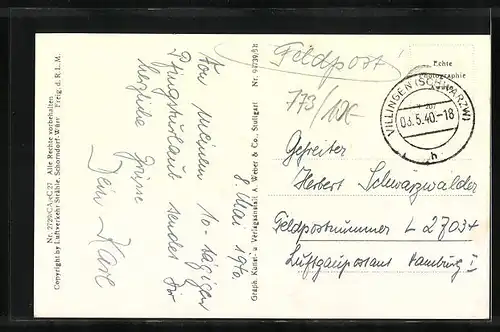 Nr. 2720/CA+C 27 Alle Rechte vorbehalten
Copyright by Luftverkehr Strähle, Schorndorf-Württ Freig. d. R.L.M.
8. Mai 1940
Von meinem 10-tägigen
Pfingsturlaub sendet Dir
herzliche Grüße
Dein Karl
Graph. Kunst- u. Verlagsanstalt A. Weber & Co., Stuttgart Nr.
Feldpost!
773/10x-
Echte
Photographie
VILLINGEN (SCHWARZW)
08.5.40.-18
h
Gefreiter
Herbert Schwarzwälder
Feldpostnummer L 27037
Luftgaupostamt Hamburg I